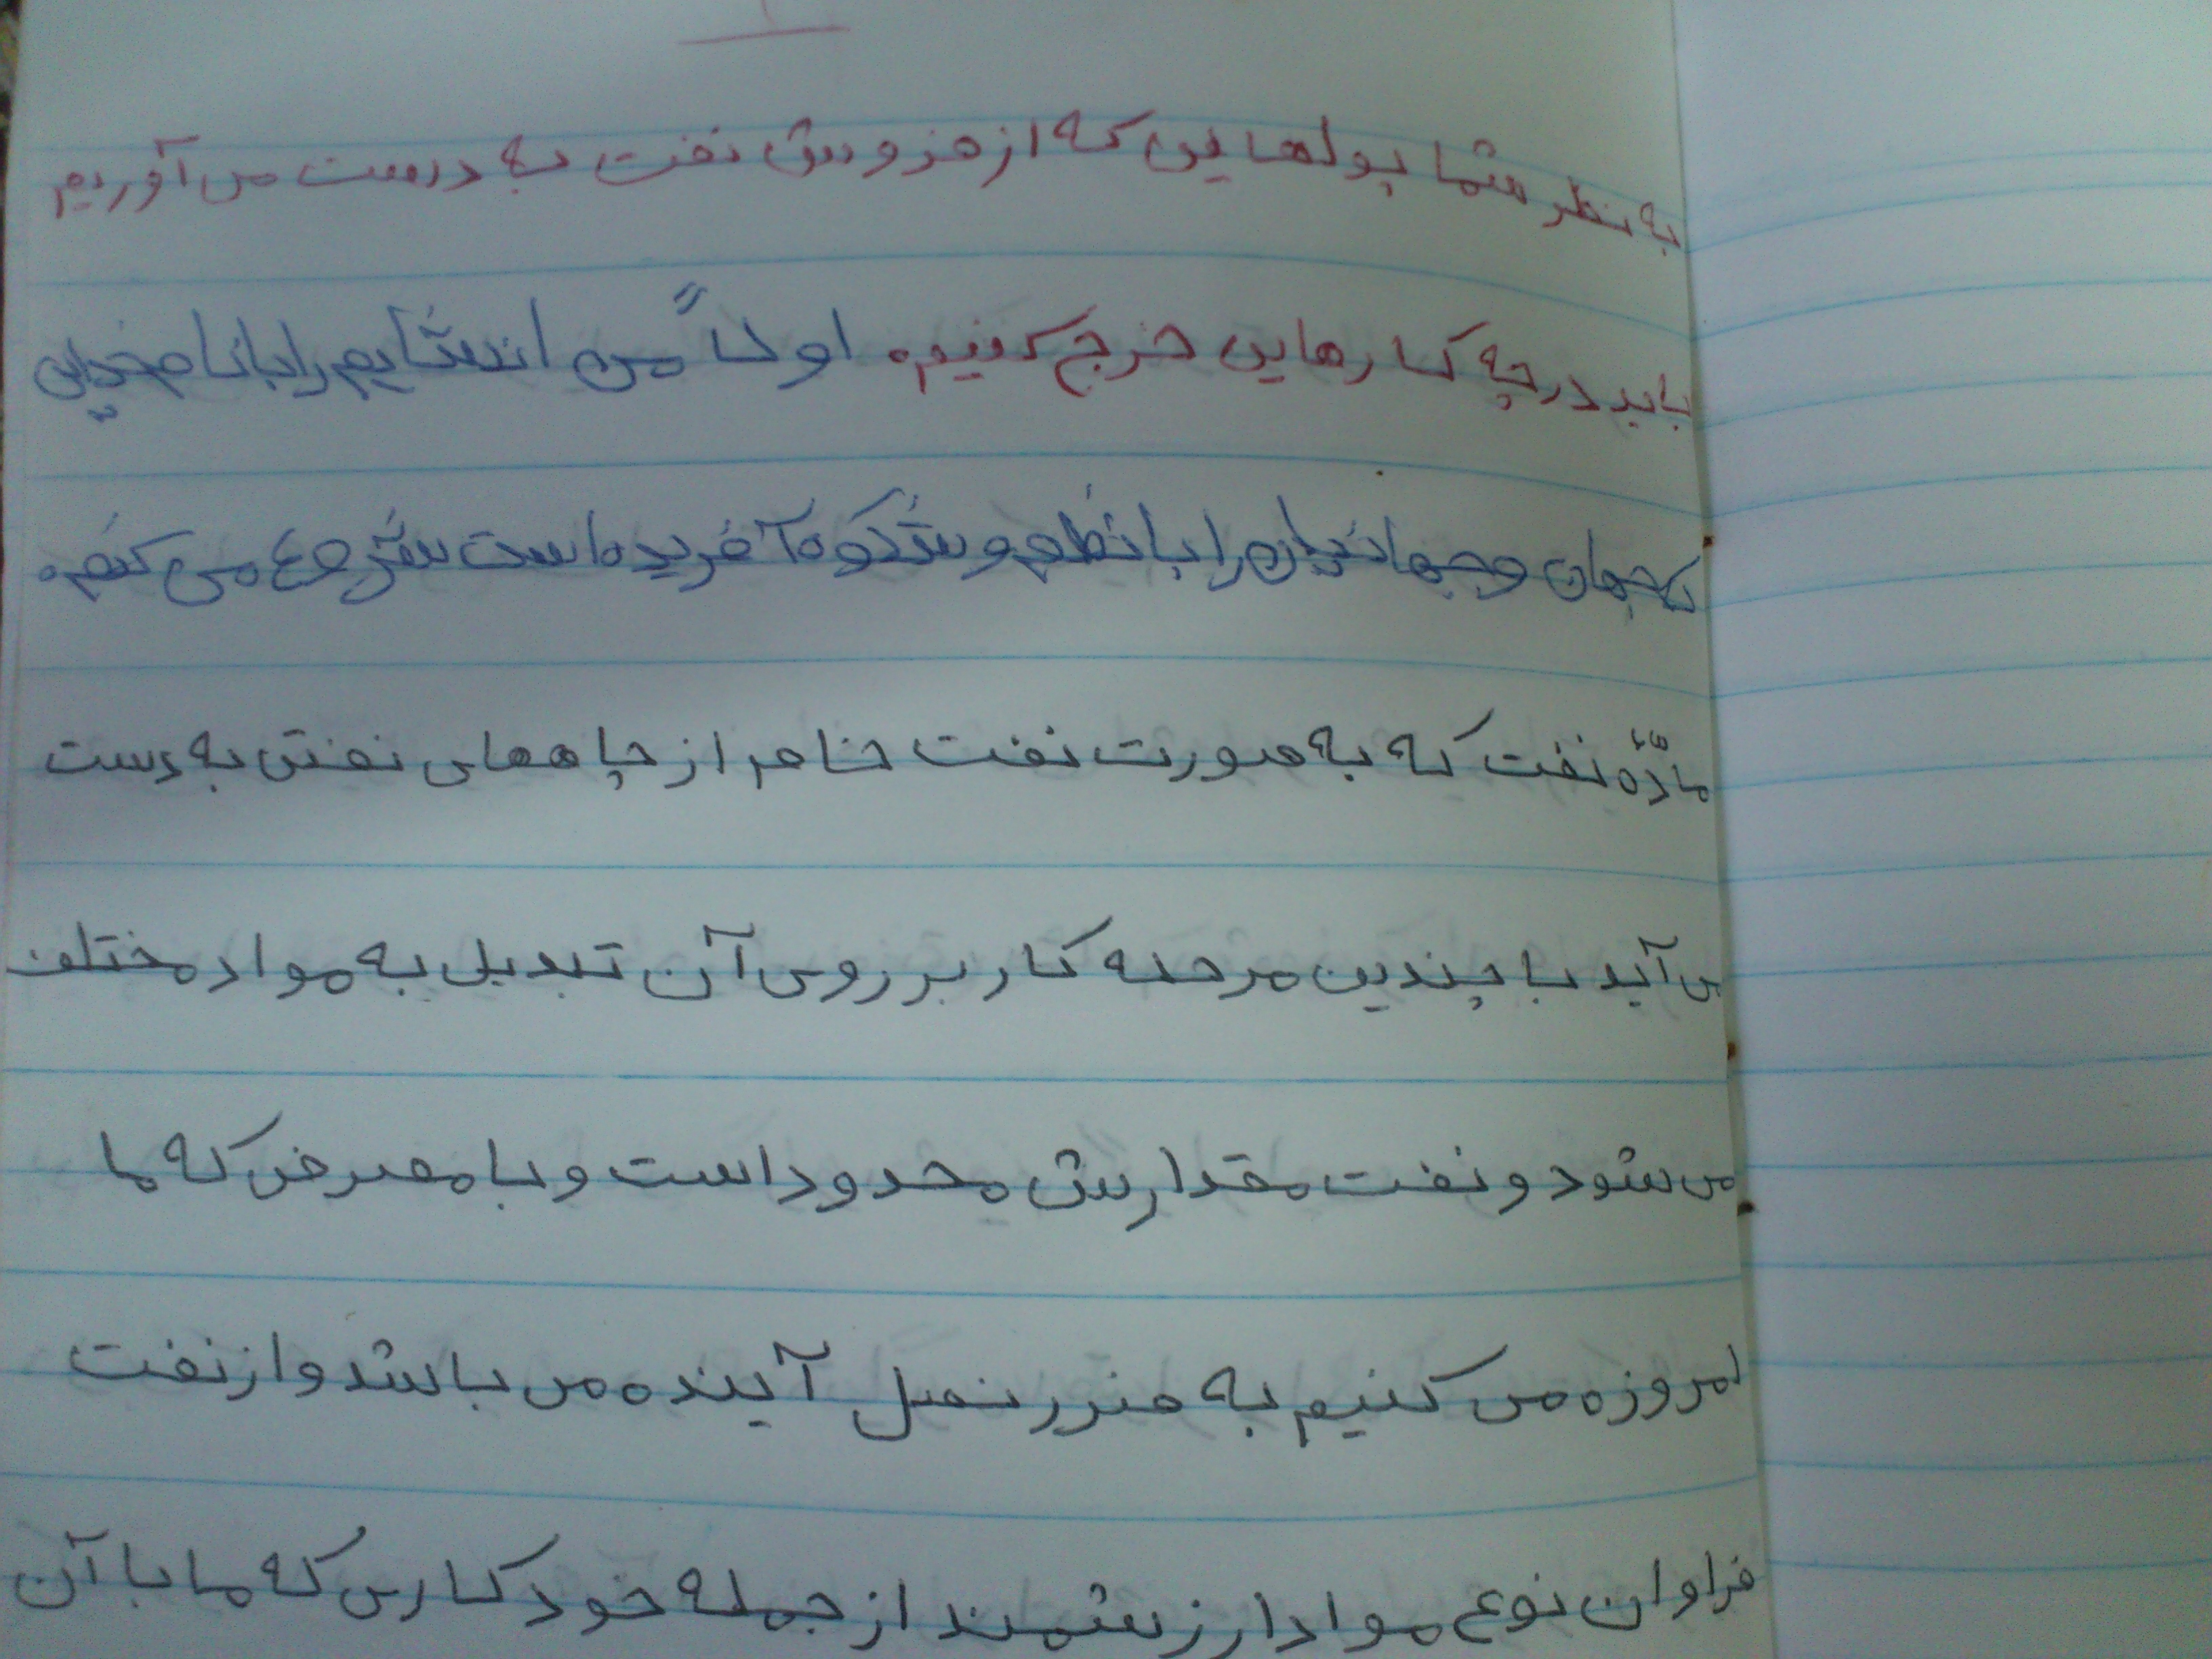 به نظر شما پولهایی که از فروش نفت به درست می آوریم
باید در چه کارهایی خرج کنیم. اولاً من انشایم را با نام خدایی
که جهان و جهانیان را با نظم و شکوه آفریده است شروع می کنم.
مادّهٔ نفت که به صورت نفت خام از چاههای نفتی به دست
می آید با چندین مرحله کار بر روی آن تبدیل به مواد مختلف
می شود و نفت مقدارش محدود است و با مصرفی که ما
امروزه می کنیم به ضرر نسل آینده می باشد و از نفت
فراوان نوع مواد ارزشمند از جمله خودکاری که ما با آن